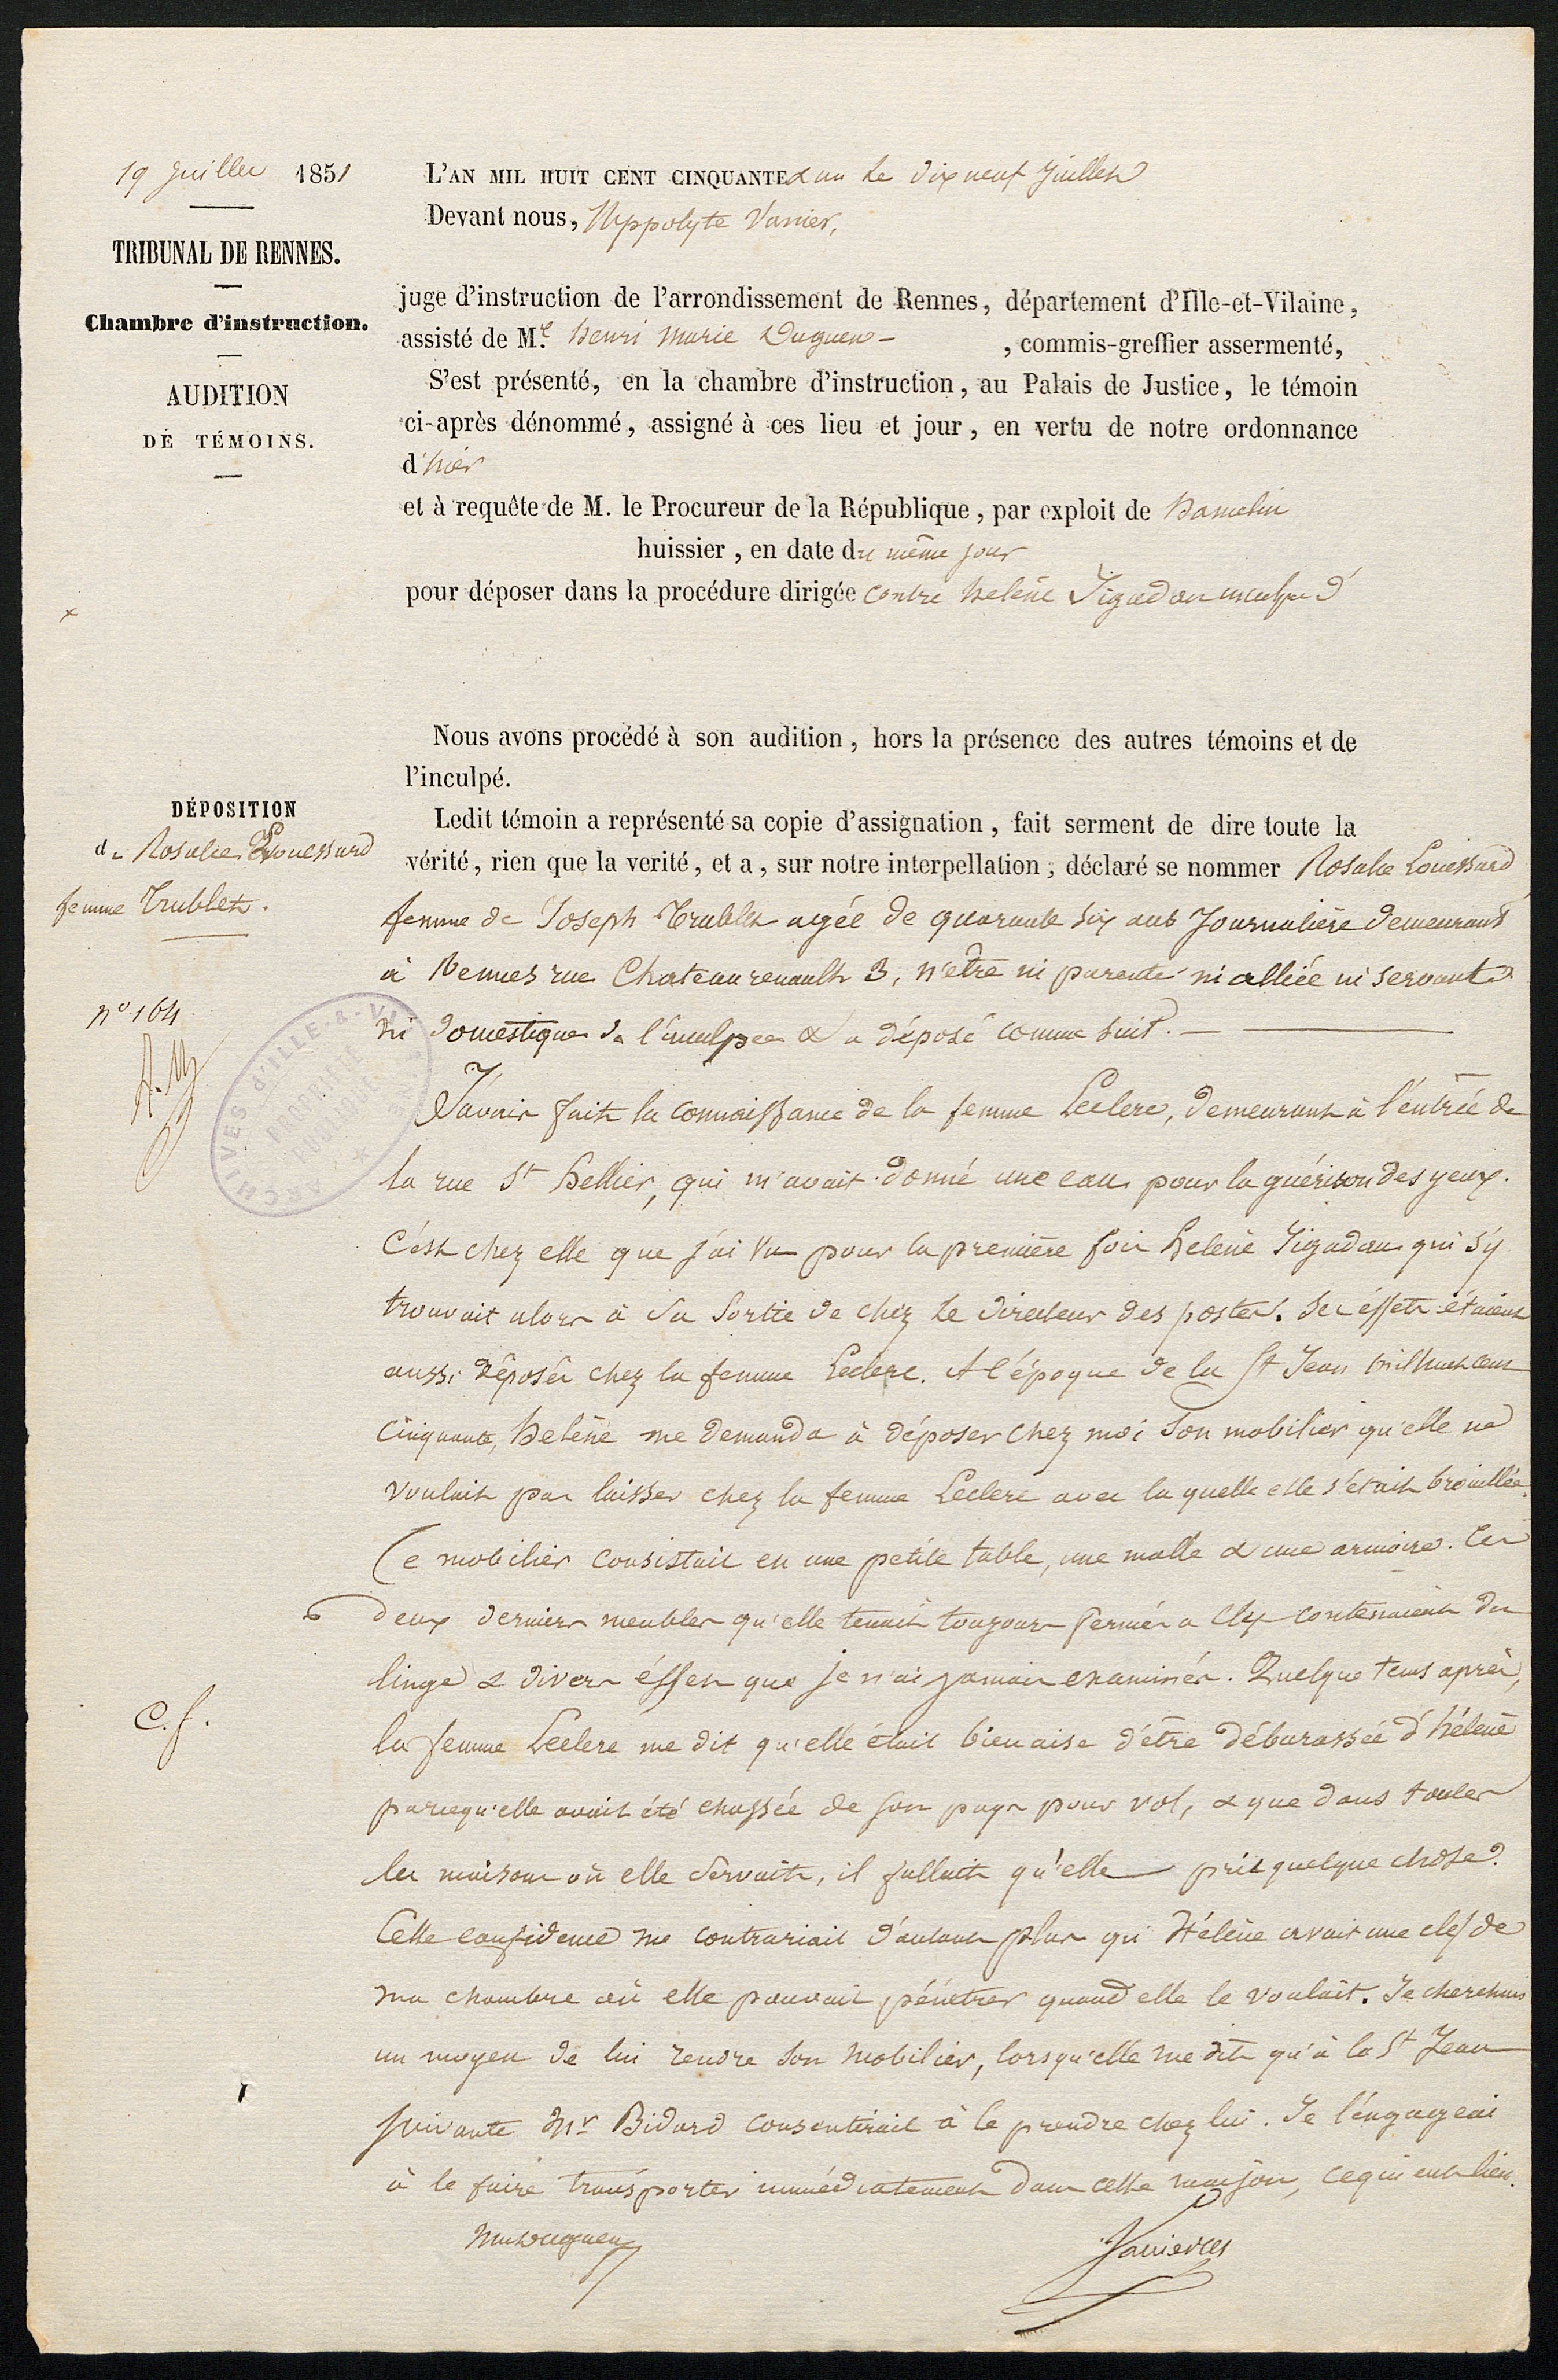 19 Juillet 1851
TRIBUNAL DE RENNES.
Chambre d'instruction.
AUDITION
DE TÉMOINS.
L'AN MIL HUIT CENT CINQUANTE & un Le dix neuf Juillet
Devant nous, Hyppolyte Vannier,
juge d'instruction de l'arrondissement de Rennes, département d'Ille-et-Vilaine,
assisté de Me. Henri Marie Duguen -, commis-greffier assermenté,
S'est présenté, en la chambre d'instruction, au Palais de Justice, le témoin
ci-après dénommé, assigné à ces lieu et jour, en vertu de notre ordonnance
d'hier
et à requête de M. le Procureur de la République, par exploit de Hamelin
huissier, en date du même jour
pour déposer dans la procédure dirigée contre heléne Jigadau inculpée d'
Nous avons procédé à son audition, hors la présence des autres témoins et de
l'inculpé.
DÉPOSITION
de Rosalie Louessard
femme Trublet.
n° 164
Ledit témoin a représenté sa copie d'assignation, fait serment de dire toute la
vérité, rien que la verité, et a, sur notre interpellation, déclaré se nommer Rosalie Louessard
femme de Joseph Trublet agée de quarante six ans Journalière demeurant
à Rennes rue Chateaurenault 3, n'être ni parente ni alliée ni servante
ni domestique de l'inculpée & a déposé comme suit.
J'avais fait la connaissance de la femme Leclerc, demeurant à l'entrée de
la rue St hellier, qui m'avait donné une eau pour la guérison des yeux.
C'est chez elle que j'ai vu pour la première fois heléne Jigadau qui s'y
trouvait alors à sa sortie de chez le directeur des postes. Ses éffets étaient
aussi déposés chez la femme Leclerc. A l'époque de la St Jean mil huit cent
cinquante, heléne me demanda à déposer chez moi son mobilier qu'elle ne
voulait pas laisser chez la femme Leclerc avec la quelle elle s'était brouillée.
Ce mobilier consistait en une petite table, une malle & une armoire. Ces
deux derniers meubles qu'elle tenait toujours fermés a clef contenaient du
linge & divers éffets que je n'ai jamais examinés. Quelque tems après,
la femme Leclerc me dit qu'elle était bien aise d'être débarassée d'héléne
parcequ'elle avait été chassée de son pays pour vol, & que dans toutes
les maisons où elle servait, il fallait qu'elle prit quelque chose.
Cette confidence me contrariait d'autant plus qu'Héléne avait une clef de
ma chambre où elle pouvait pénétrer quand elle le voulait. Je cherchais
un moyen de lui rendre son mobilier, lorsqu'elle me dit qu'à la St Jean
suivante Mr Bidard consentirait à le prendre chez lui. Je l'engageai
à le faire transporter immédiatement dans cette maison, ce qui eut lieu.
C. f.
ARCHIVES d'ILLE-&-V
PROPRIÉTÉ
PUBLIQUE